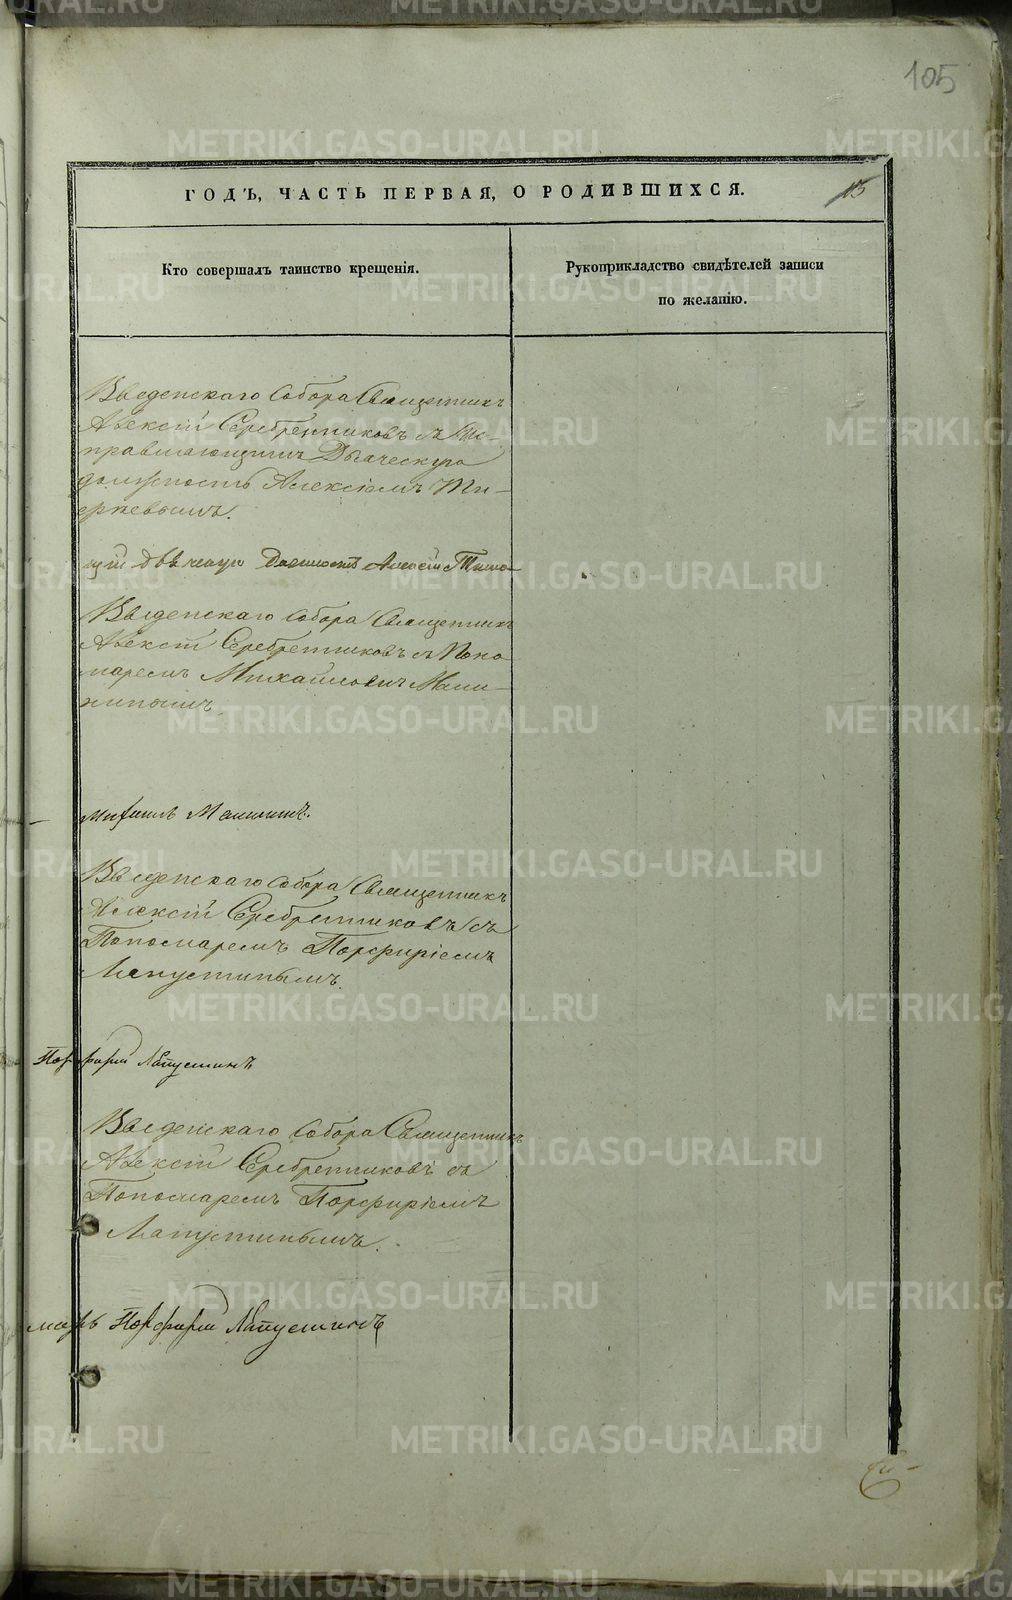 105
ГОДЪ, ЧАСТЬ ПЕРВАЯ, О РОДИВШИХСЯ.
Кто совершалъ таинство крещенія.
Рукоприкладство свидѣтелей записи
по желанію.
Введенскаго Собора Священникъ
Алексій Серебренниковъ съ Ис-
правляющимъ Дьяческую
должность Алексіемъ
Должность Алексій
Введенскаго Собора Священникъ
Алексій Серебренниковъ съ Поно-
маремъ Михаиломъ Мали-
нинымъ
Михаилъ Малининъ.
Введенскаго Собора Священникъ
Алексій Серебренниковъ съ
Пономаремъ Порфиріемъ
Лапустинымъ.
Порфирій Лапустинъ
Введенскаго Собора Священникъ
Алексій Серебренниковъ съ
Пономаремъ Порфиріемъ
Лапустинымъ.
марь Порфирій Лапустинъ
METRIKI.GASO-URAL.RU